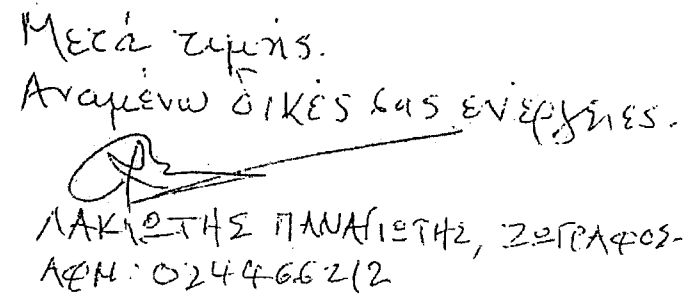 Μετά τιμής.
Αναμένω δικές σας ενέργειες.
ΛΑΚΙΩΤΗΣ ΠΑΝΑΓΙΩΤΗΣ, ΖΩΓΡΑΦΟΣ
ΑΦΜ: 024466212